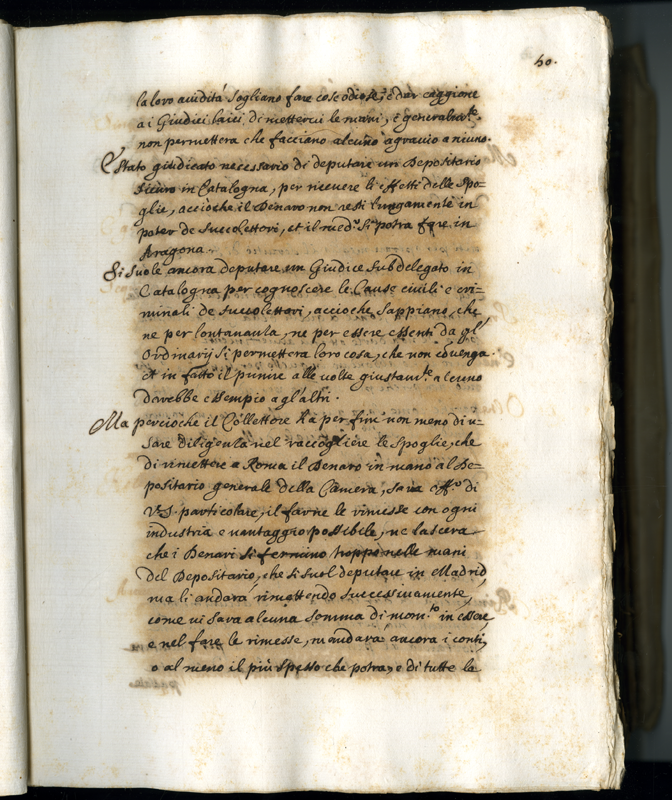 40.
la loro avidità sogliano fare cose odiose, e dar caggione
a i Giudici laici di mettervi le mani, e generalm.te
non permetterà che facciano alcuno agravio a niuno.
È Stato giudicato necessario di deputare un Depositario
sicuro in Catalogna, per ricevere li effetti delle Spo=
glie, acciòche il Denaro non resti lungamente in
poter de Succollettori, et il med.o si potrà fare in
Aragona.
Si suole ancora deputare un Giudice Subdelegato in
Catalogna per cognoscere le Cause civili e cri=
minali de succollettori, acciòche sappiano, che
ne per lontananza, ne per essere essenti da gl'
Ordinarij si permetterà loro cosa, che non convenga.
et in fatto il punire alle volte giustam.te alcuno
darebbe essempio a gl'altri.
Ma percioche il Collettore ha per fine non meno di u=
sare diligenza nel raccogliere le Spoglie, che
di rimettere a Roma il Denaro in mano al De=
positario generale della Camera, sarà off.o di
V.S. particolare, il farne le rimesse con ogni
industria e vantaggio possibile, ne lascerà
che i Denari si fermino troppo nelle mani
del Depositario, che si suol deputare in Madrid,
ma li andarà rimettendo successivamente,
come vi sarà alcuna somma di mom.to in essere
e nel fare le rimesse, mandarà ancora i conti,
o al meno il più spesso che potrà, e di tutte la